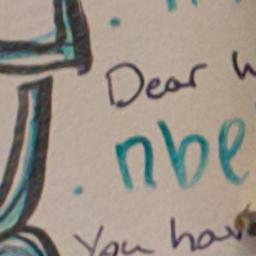 Dear
nbe
You have